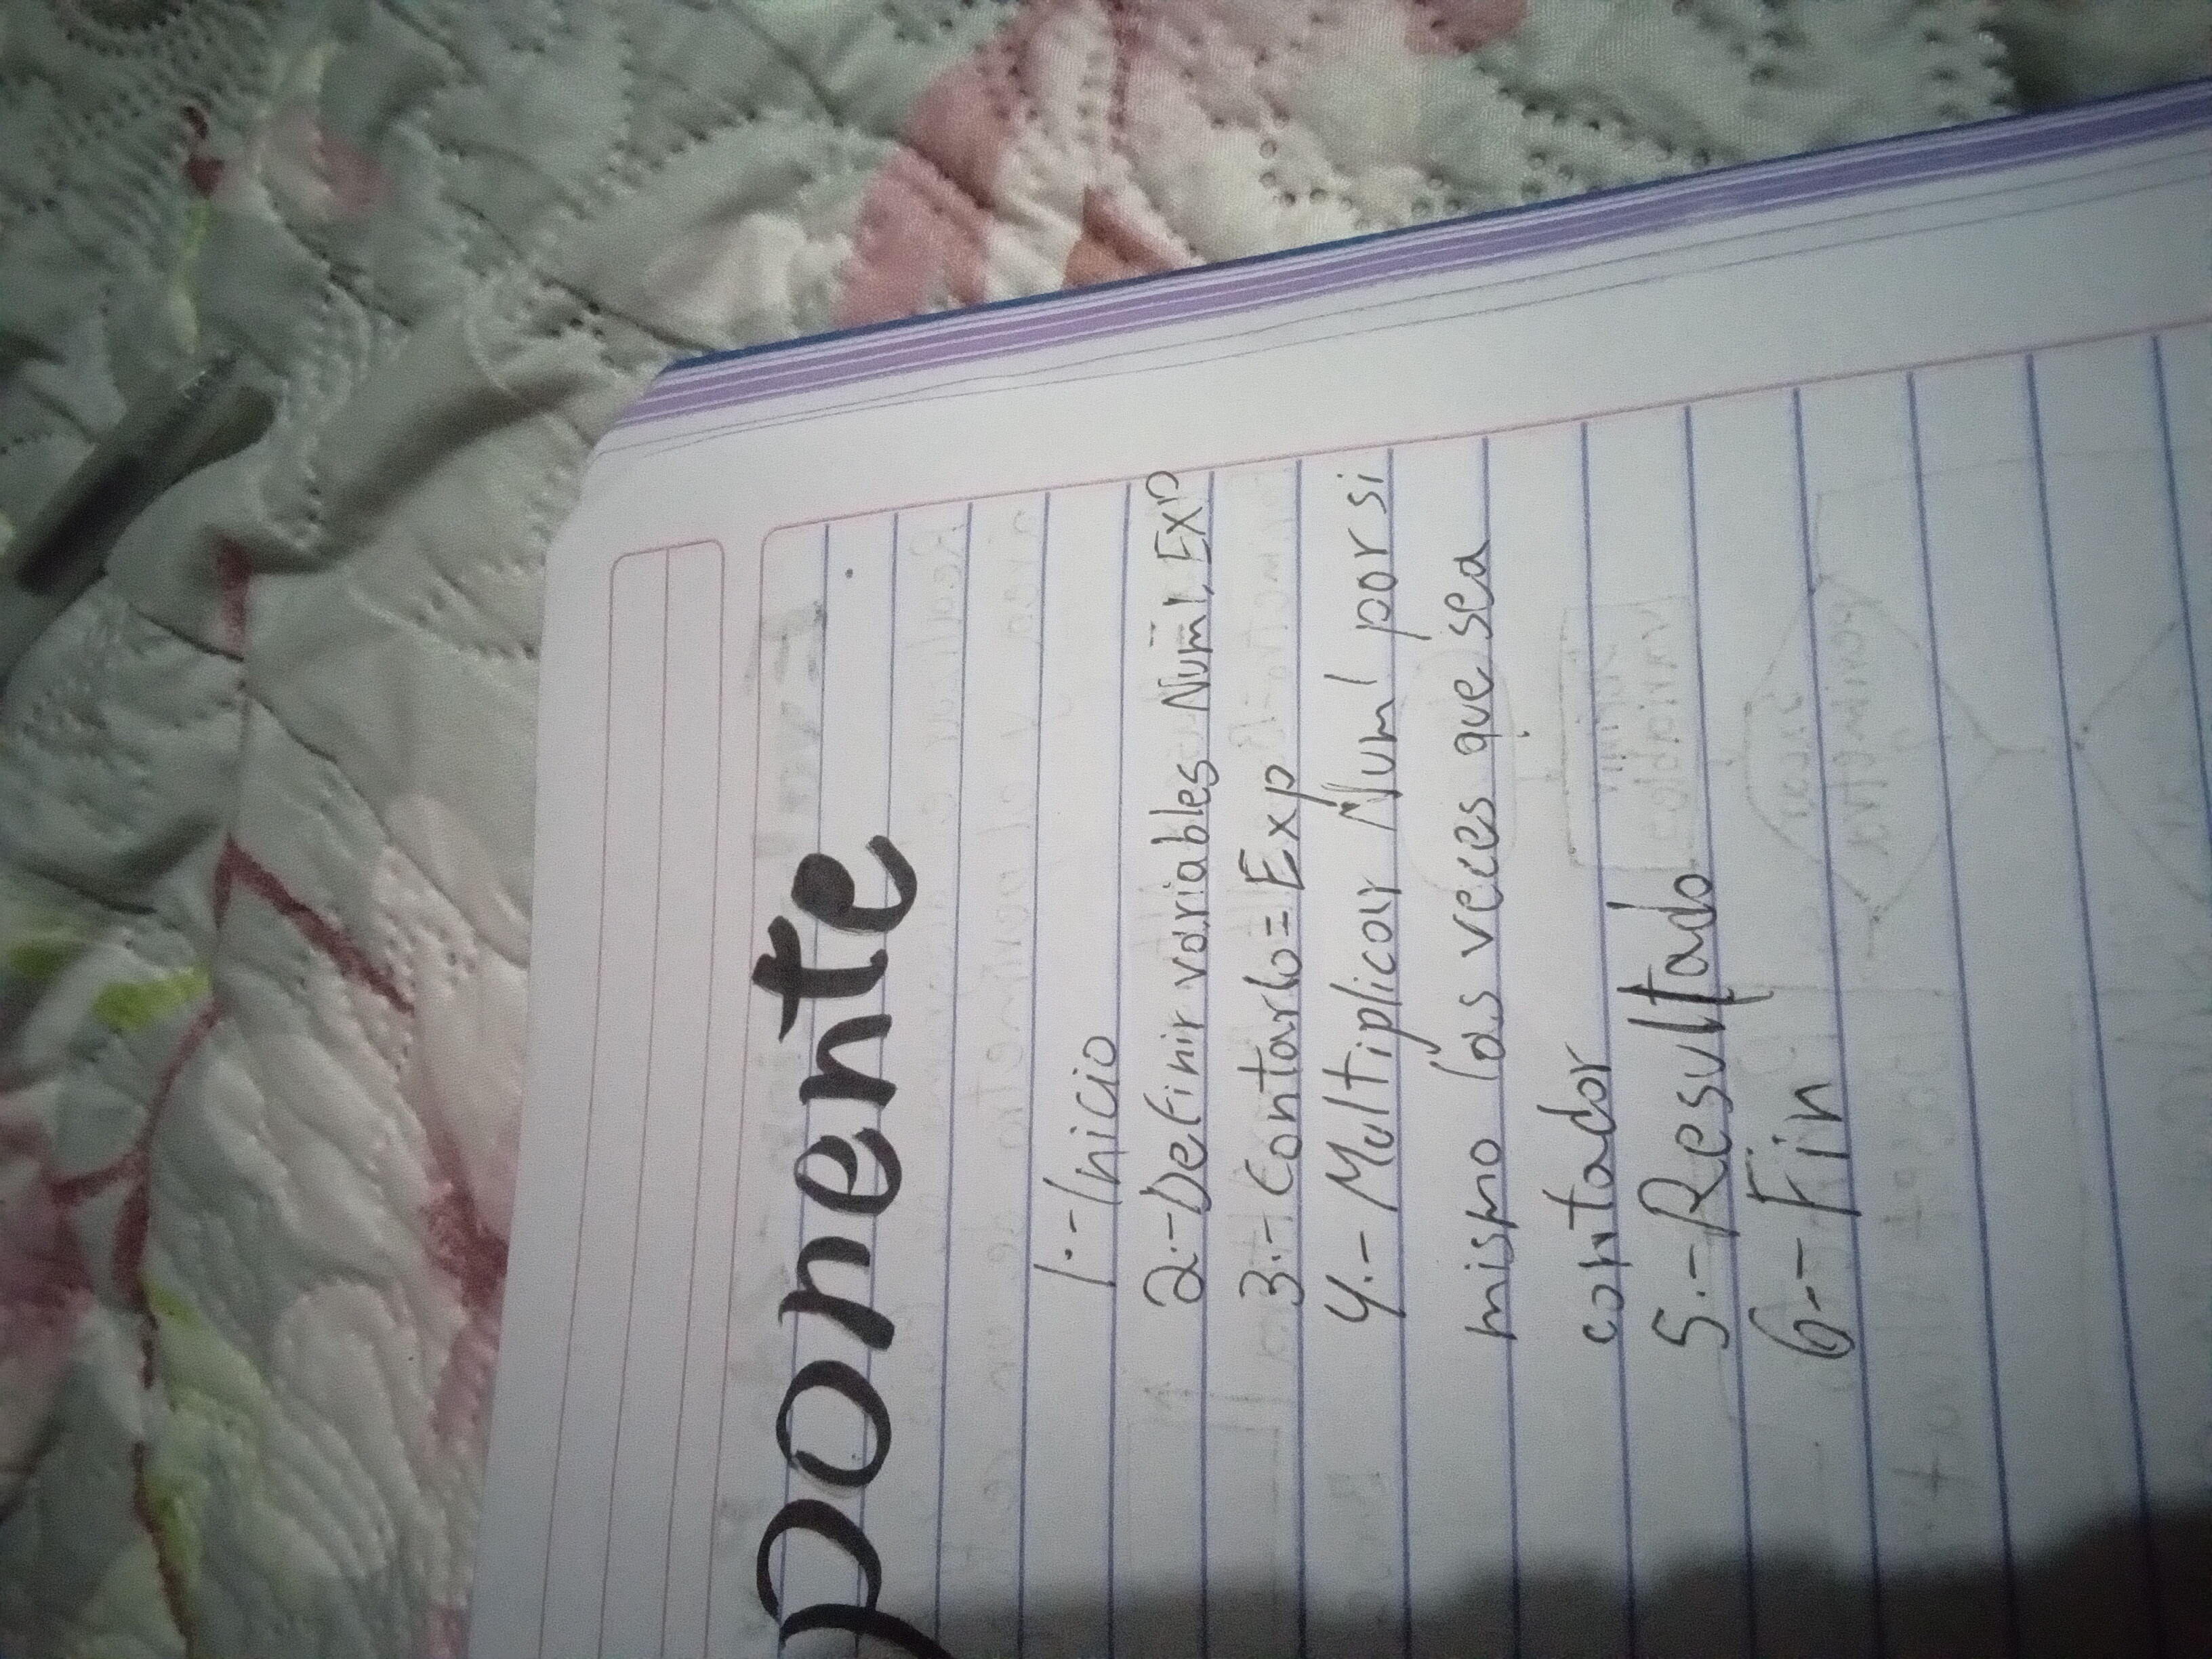 ponente
1.- Inicio
2.- Definir variables Num1, Exp
3.- Contarlo = Exp
4.- Multiplicar Num1 por si
mismo las veces que sea
contador
5.- Resultado
6.- Fin